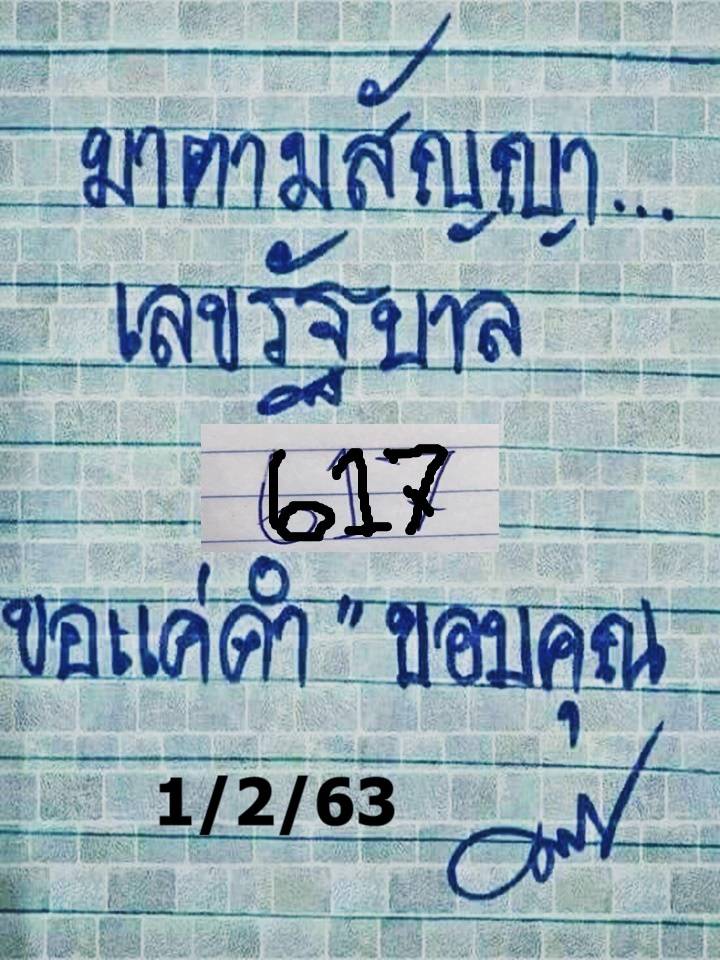 มาตามสัญญา...
เลขรัฐบาล
617
ขอแค่คำ "ขอบคุณ
1/2/63